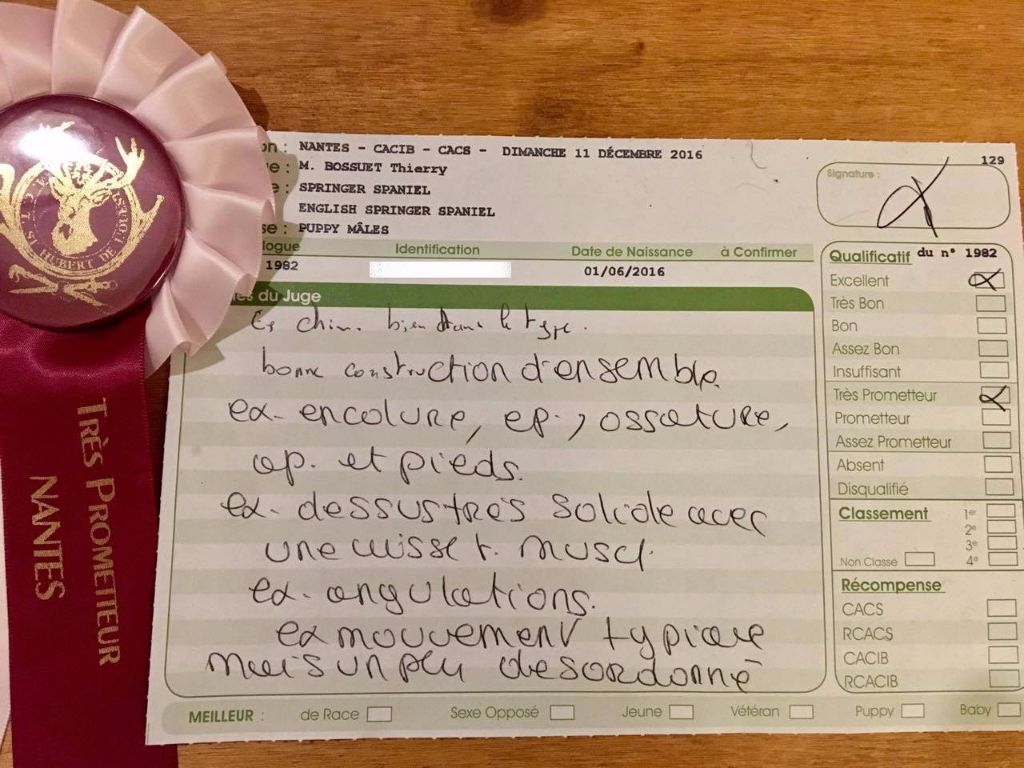 on : NANTES - CACIB - CACS - DIMANCHE 11 DÉCEMBRE 2016
e : M. BOSSUET Thierry
129
e : SPRINGER SPANIEL
ENGLISH SPRINGER SPANIEL
se : PUPPY MÂLES
Signature :
logue Identification Date de Naissance à Confirmer
1982 01/06/2016
es du Juge
chien bien dans le type.
bonne construction d'ensemble
ex. encolure, ep., ossature,
ap. et pieds.
ex. dessus très solide avec
une cuisse t. muscl.
ex. angulations.
ex mouvement typique
mais un peu desordonné
Qualificatif du n° 1982
Excellent
Très Bon
Bon
Assez Bon
Insuffisant
Très Prometteur
Prometteur
Assez Prometteur
Absent
Disqualifié
Classement 1er
2e
3e
Non Classé 4e
Récompense
CACS
RCACS
CACIB
RCACIB
MEILLEUR : de Race Sexe Opposé Jeune Vétéran Puppy Baby
TRÈS PROMETTEUR
NANTES
ST HUBERT DE L'OUEST